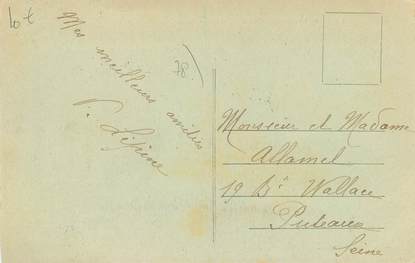 10 t
78
Mes meilleurs amitiés
V. Lépine
Monsieur et Madame
Allamel
19 Bd Wallace
Puteaux
Seine